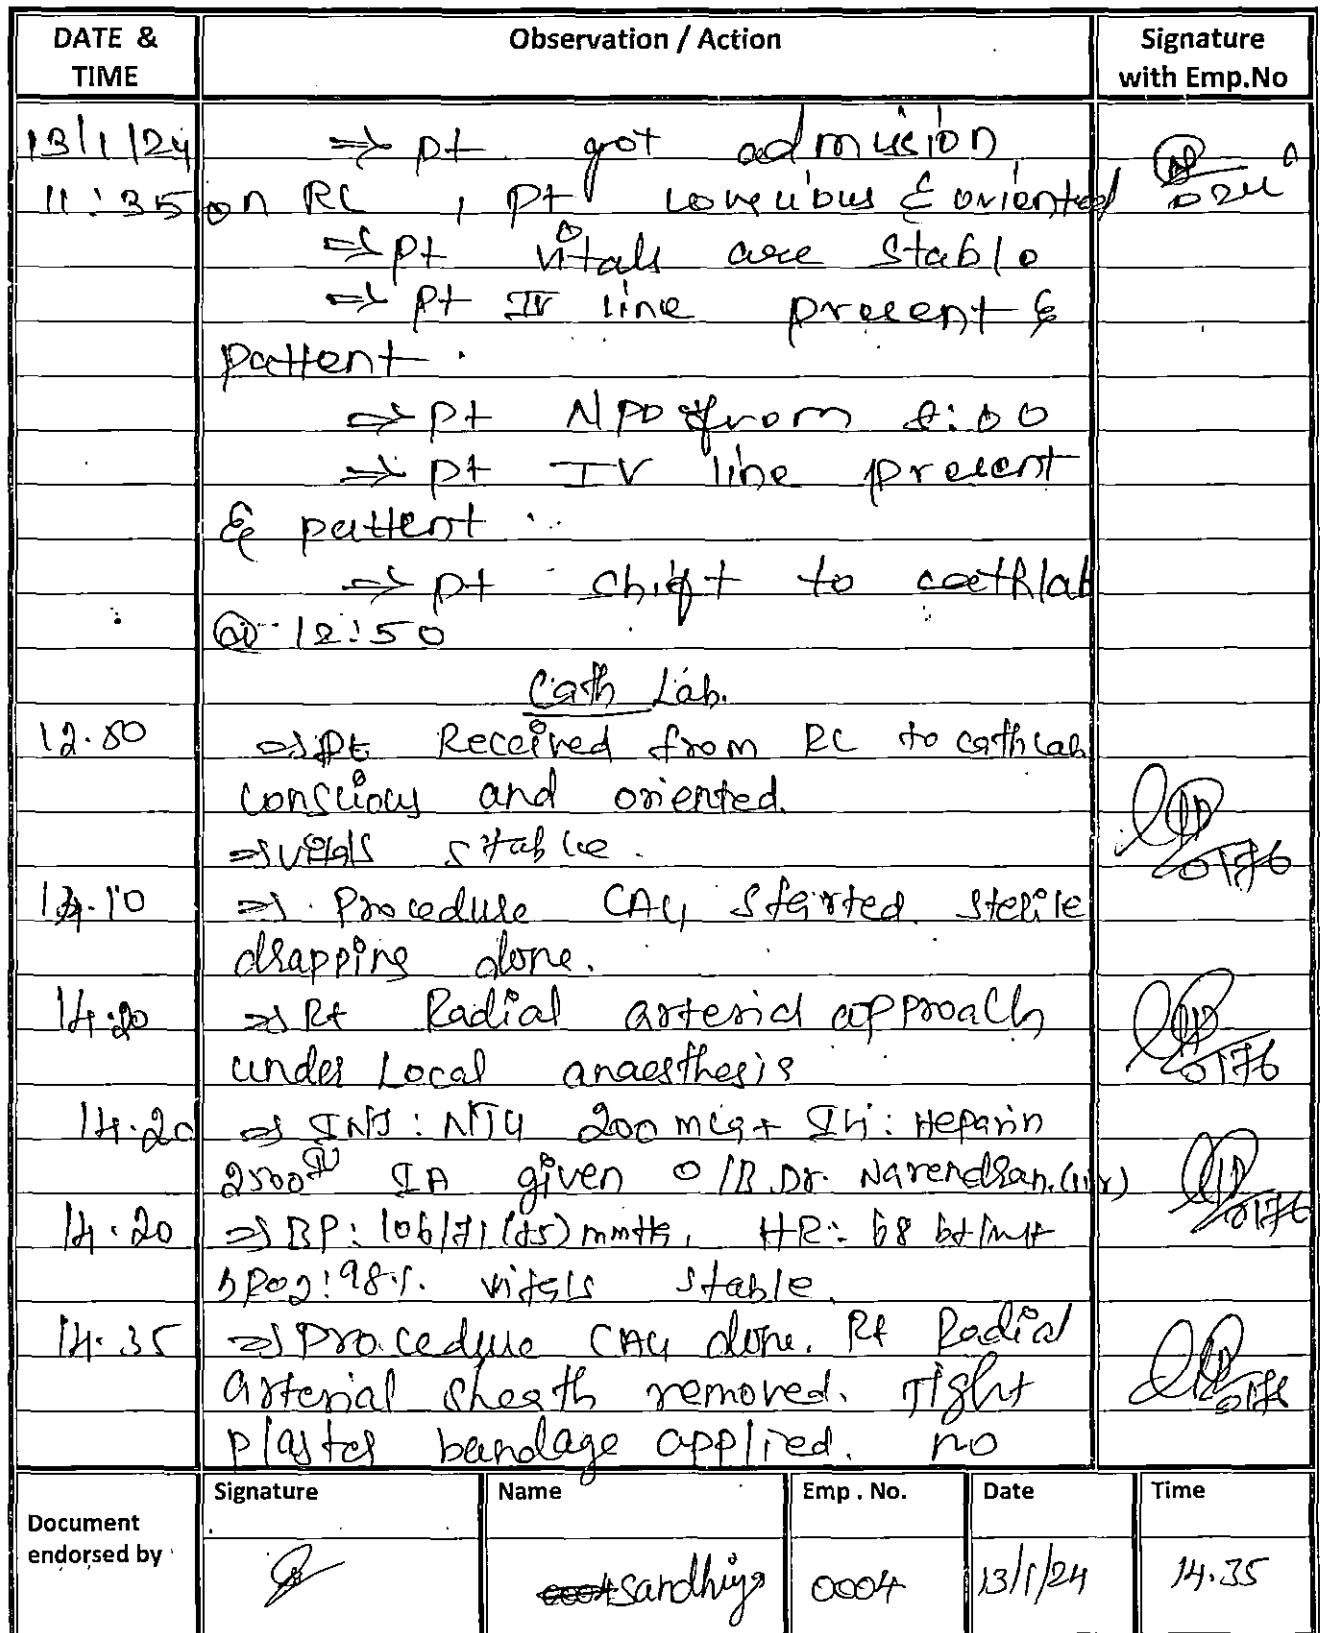 DATE & TIME Observation / Action Signature with Emp.No
13/1/24 => pt got admission,
11:35 on RC, pt conscious & oriented 024
=> pt vitals are stable
=> pt IV line present &
pattent.
=> pt NPO from 8:00
=> pt IV line present
& pattent.
=> pt shift to cathlab
@ 12:50
Cath Lab.
12.50 => pt Received from RC to cath lab
conscious and oriented.
=> vitals stable. 0176
=> Procedure CAG started. sterile
drapping done.
14.20 => Rt Radial arterial approach
under Local anaesthesis 0176
14.20 => INJ: NTG 200 mcg + Inj: Heparin
2500 IU IA given O/B Dr. Narendran. 0176
14.20 => BP: 106/71 (85) mmHg, HR: 68 bt/mt
SPO2: 98%. vitals stable.
14.35 => Procedure CAG done. Rt Radial
arterial sheath removed. Tight 0176
plaster bandage applied. no
Document endorsed by Signature Name Emp . No. Date Time
sandhiya 0004 13/1/24 14.35